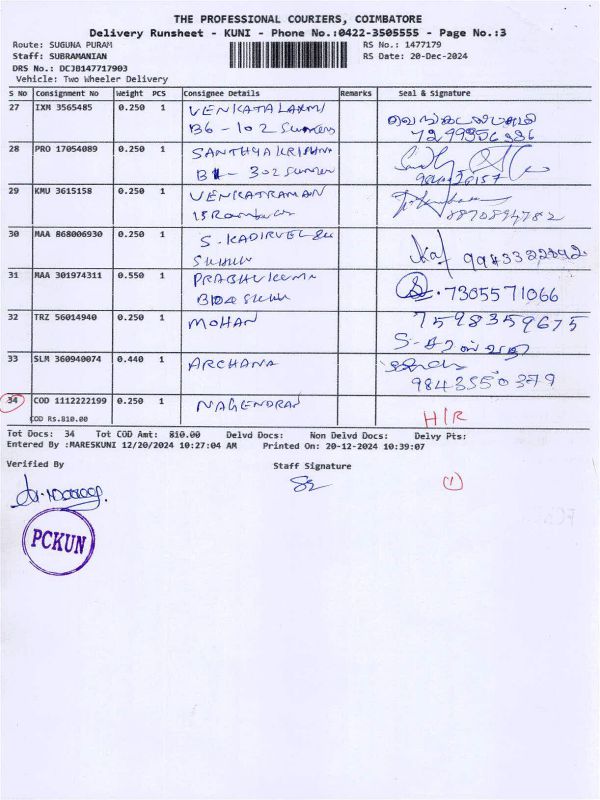 THE PROFESSIONAL COURIERS, COIMBATORE
Delivery Runsheet - KUNI - Phone No.:0422-3505555 - Page No.:3
Route: SUGUNA PURAM RS No.: 1477179
Staff: SUBRAMANIAN RS Date: 20-Dec-2024
DRS No.: DCJB147717903
Vehicle: Two Wheeler Delivery
S No Consignment No Weight PCS Consignee Details Remarks Seal & Signature
27 IXM 3565485 0.250 1 VENKATALAXMI
B6 - 102 7299356236
28 PRO 17054089 0.250 1 SANTHYA KRISHNA
302
29 KMU 3615158 0.250 1 VENKATRAMAN
8870894782
30 MAA 868006930 0.250 1 S. KADIRVEL
9943322892
31 MAA 301974311 0.550 1 PRABHU
7305571066
32 TRZ 56014940 0.250 1 MOHAN 7598359675
33 SLM 360940074 0.440 1 ARCHANA
9843550379
34 COD 1112222199 0.250 1 NAGENDRAN H/R
COD Rs.810.00
Tot Docs: 34 Tot COD Amt: 810.00 Delvd Docs: Non Delvd Docs: Delvy Pts:
Entered By :MARESKUNI 12/20/2024 10:27:04 AM Printed On: 20-12-2024 10:39:07
Verified By Staff Signature
1
PCKUN